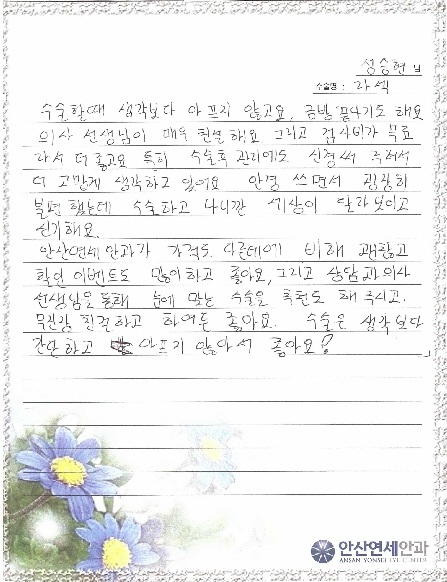 성승현 님
수술명 : 라섹
수술할때 생각보다 아프지 않고요, 금방 끝나기도 해요
의사 선생님이 매우 친절해요 그리고 검사비가 무료
라서 더 좋고요 특히 수술후 관리에도 신경써 주셔서
더 고맙게 생각하고 있어요 안경 쓰면서 굉장히
불편했는데 수술하고 나니깐 세상이 달라보이고
신기해요.
안산연세안과가 가격도 다른데에 비해 괜찮고
할인 이벤트도 많이하고 좋아요, 그리고 상담과 의사
선생님을 통해 눈에 맞는 수술을 추천도 해 주시고.
무진장 친절하고 하여튼 좋아요. 수술은 생각보다
간단하고 아프지 않아서 좋아요!
안산연세안과
ANSAN YONSEI EYE CENTER